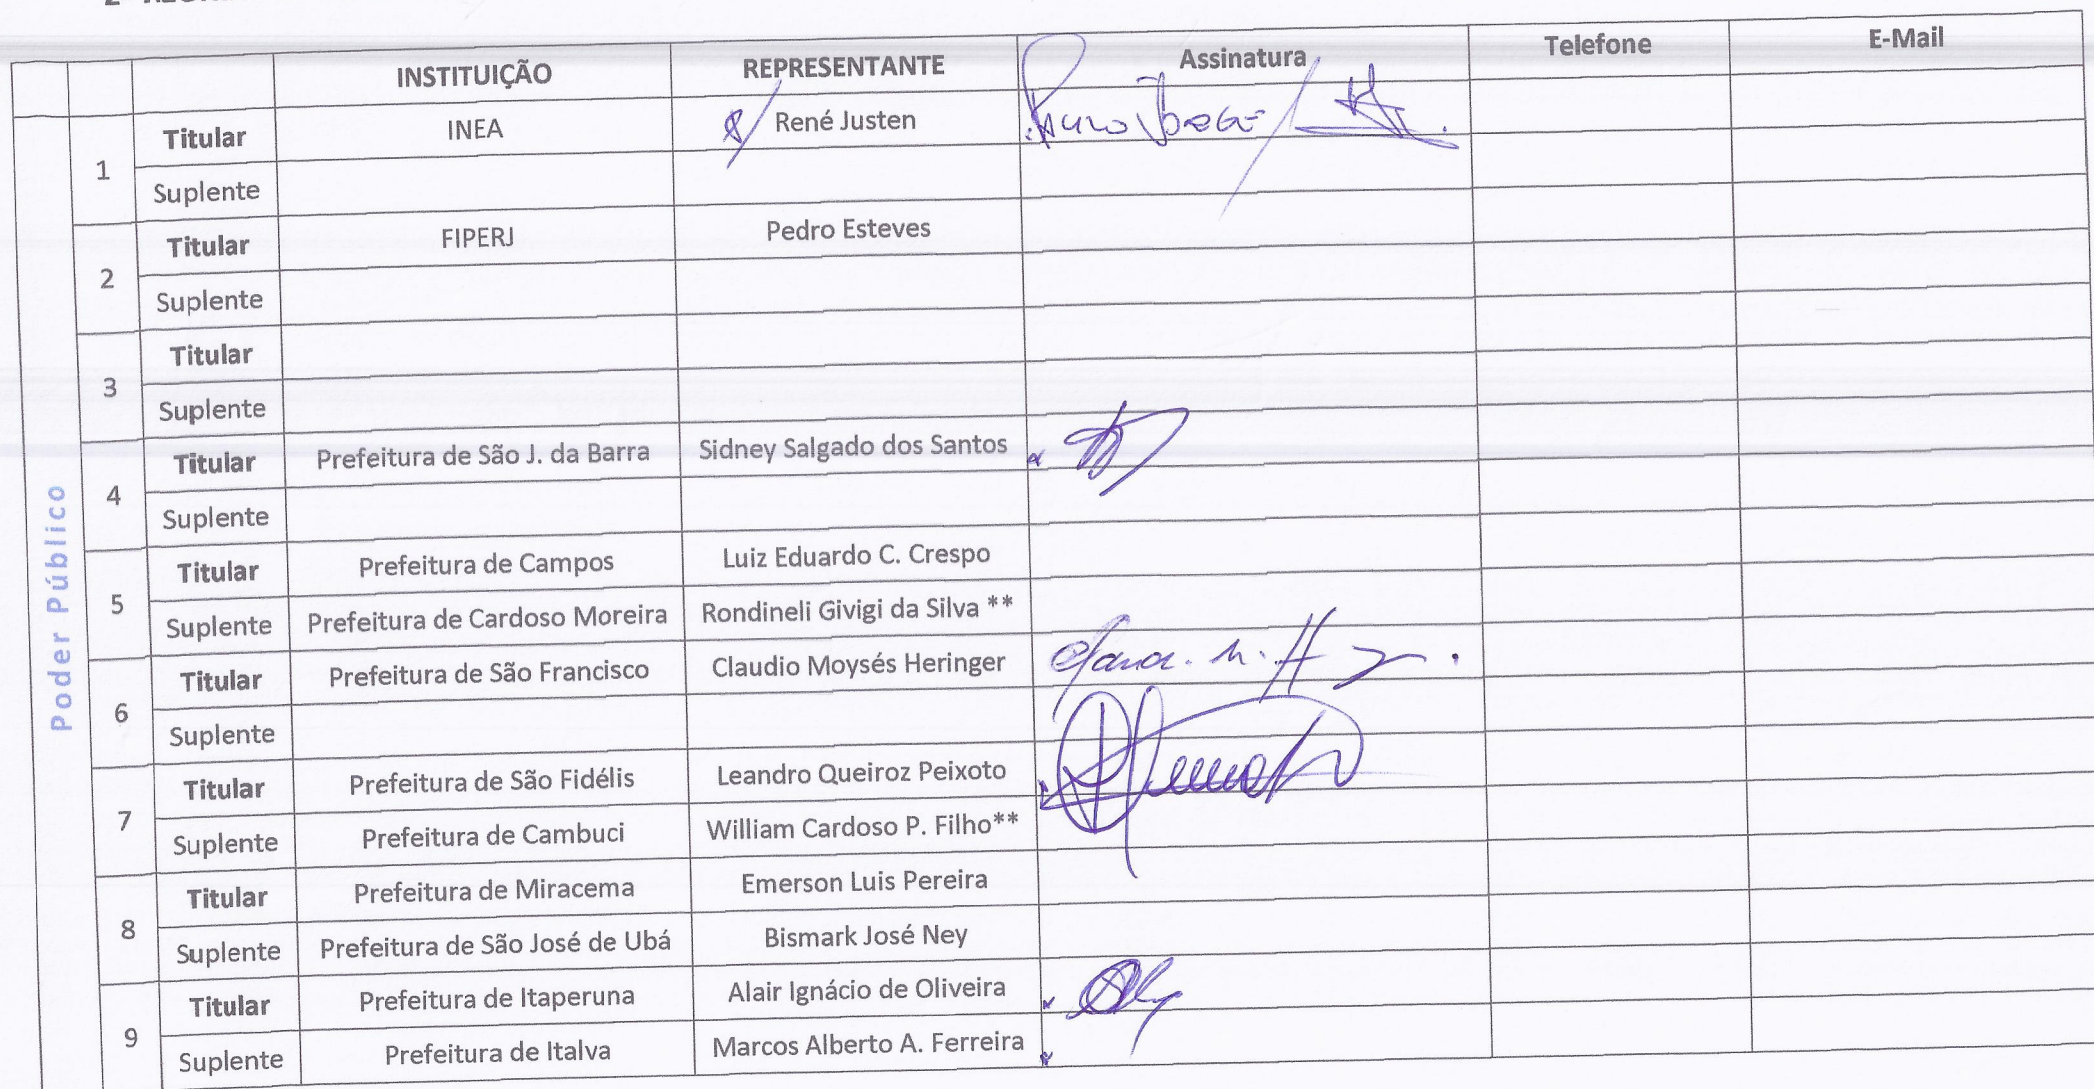 INSTITUIÇÃO REPRESENTANTE Assinatura Telefone E-Mail
Poder Público
1 Titular INEA René Justen Paulo Jorge
Suplente
2 Titular FIPERJ Pedro Esteves
Suplente
3 Titular
Suplente
4 Titular Prefeitura de São J. da Barra Sidney Salgado dos Santos
Suplente
5 Titular Prefeitura de Campos Luiz Eduardo C. Crespo
Suplente Prefeitura de Cardoso Moreira Rondineli Givigi da Silva **
6 Titular Prefeitura de São Francisco Claudio Moysés Heringer
Suplente
7 Titular Prefeitura de São Fidélis Leandro Queiroz Peixoto
Suplente Prefeitura de Cambuci William Cardoso P. Filho**
8 Titular Prefeitura de Miracema Emerson Luis Pereira
Suplente Prefeitura de São José de Ubá Bismark José Ney
9 Titular Prefeitura de Itaperuna Alair Ignácio de Oliveira
Suplente Prefeitura de Italva Marcos Alberto A. Ferreira